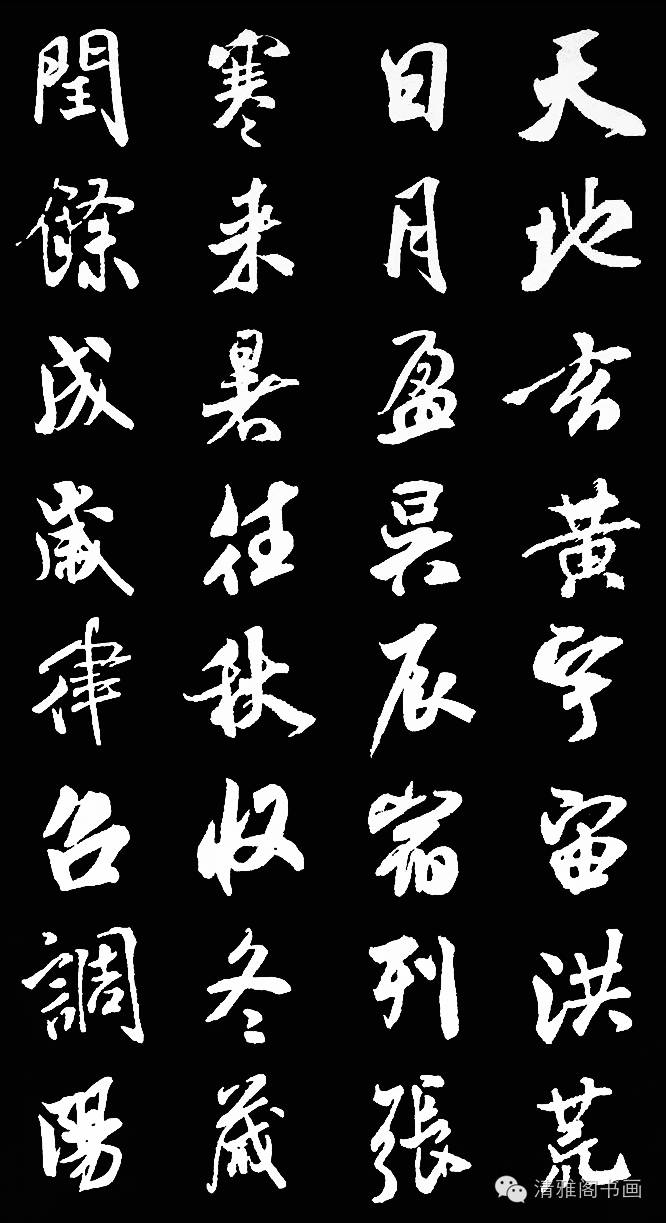 天地玄黃宇宙洪荒
日月盈昃辰宿列張
寒来暑往秋收冬蔵
閏餘成歲律召調陽
清雅阁书画